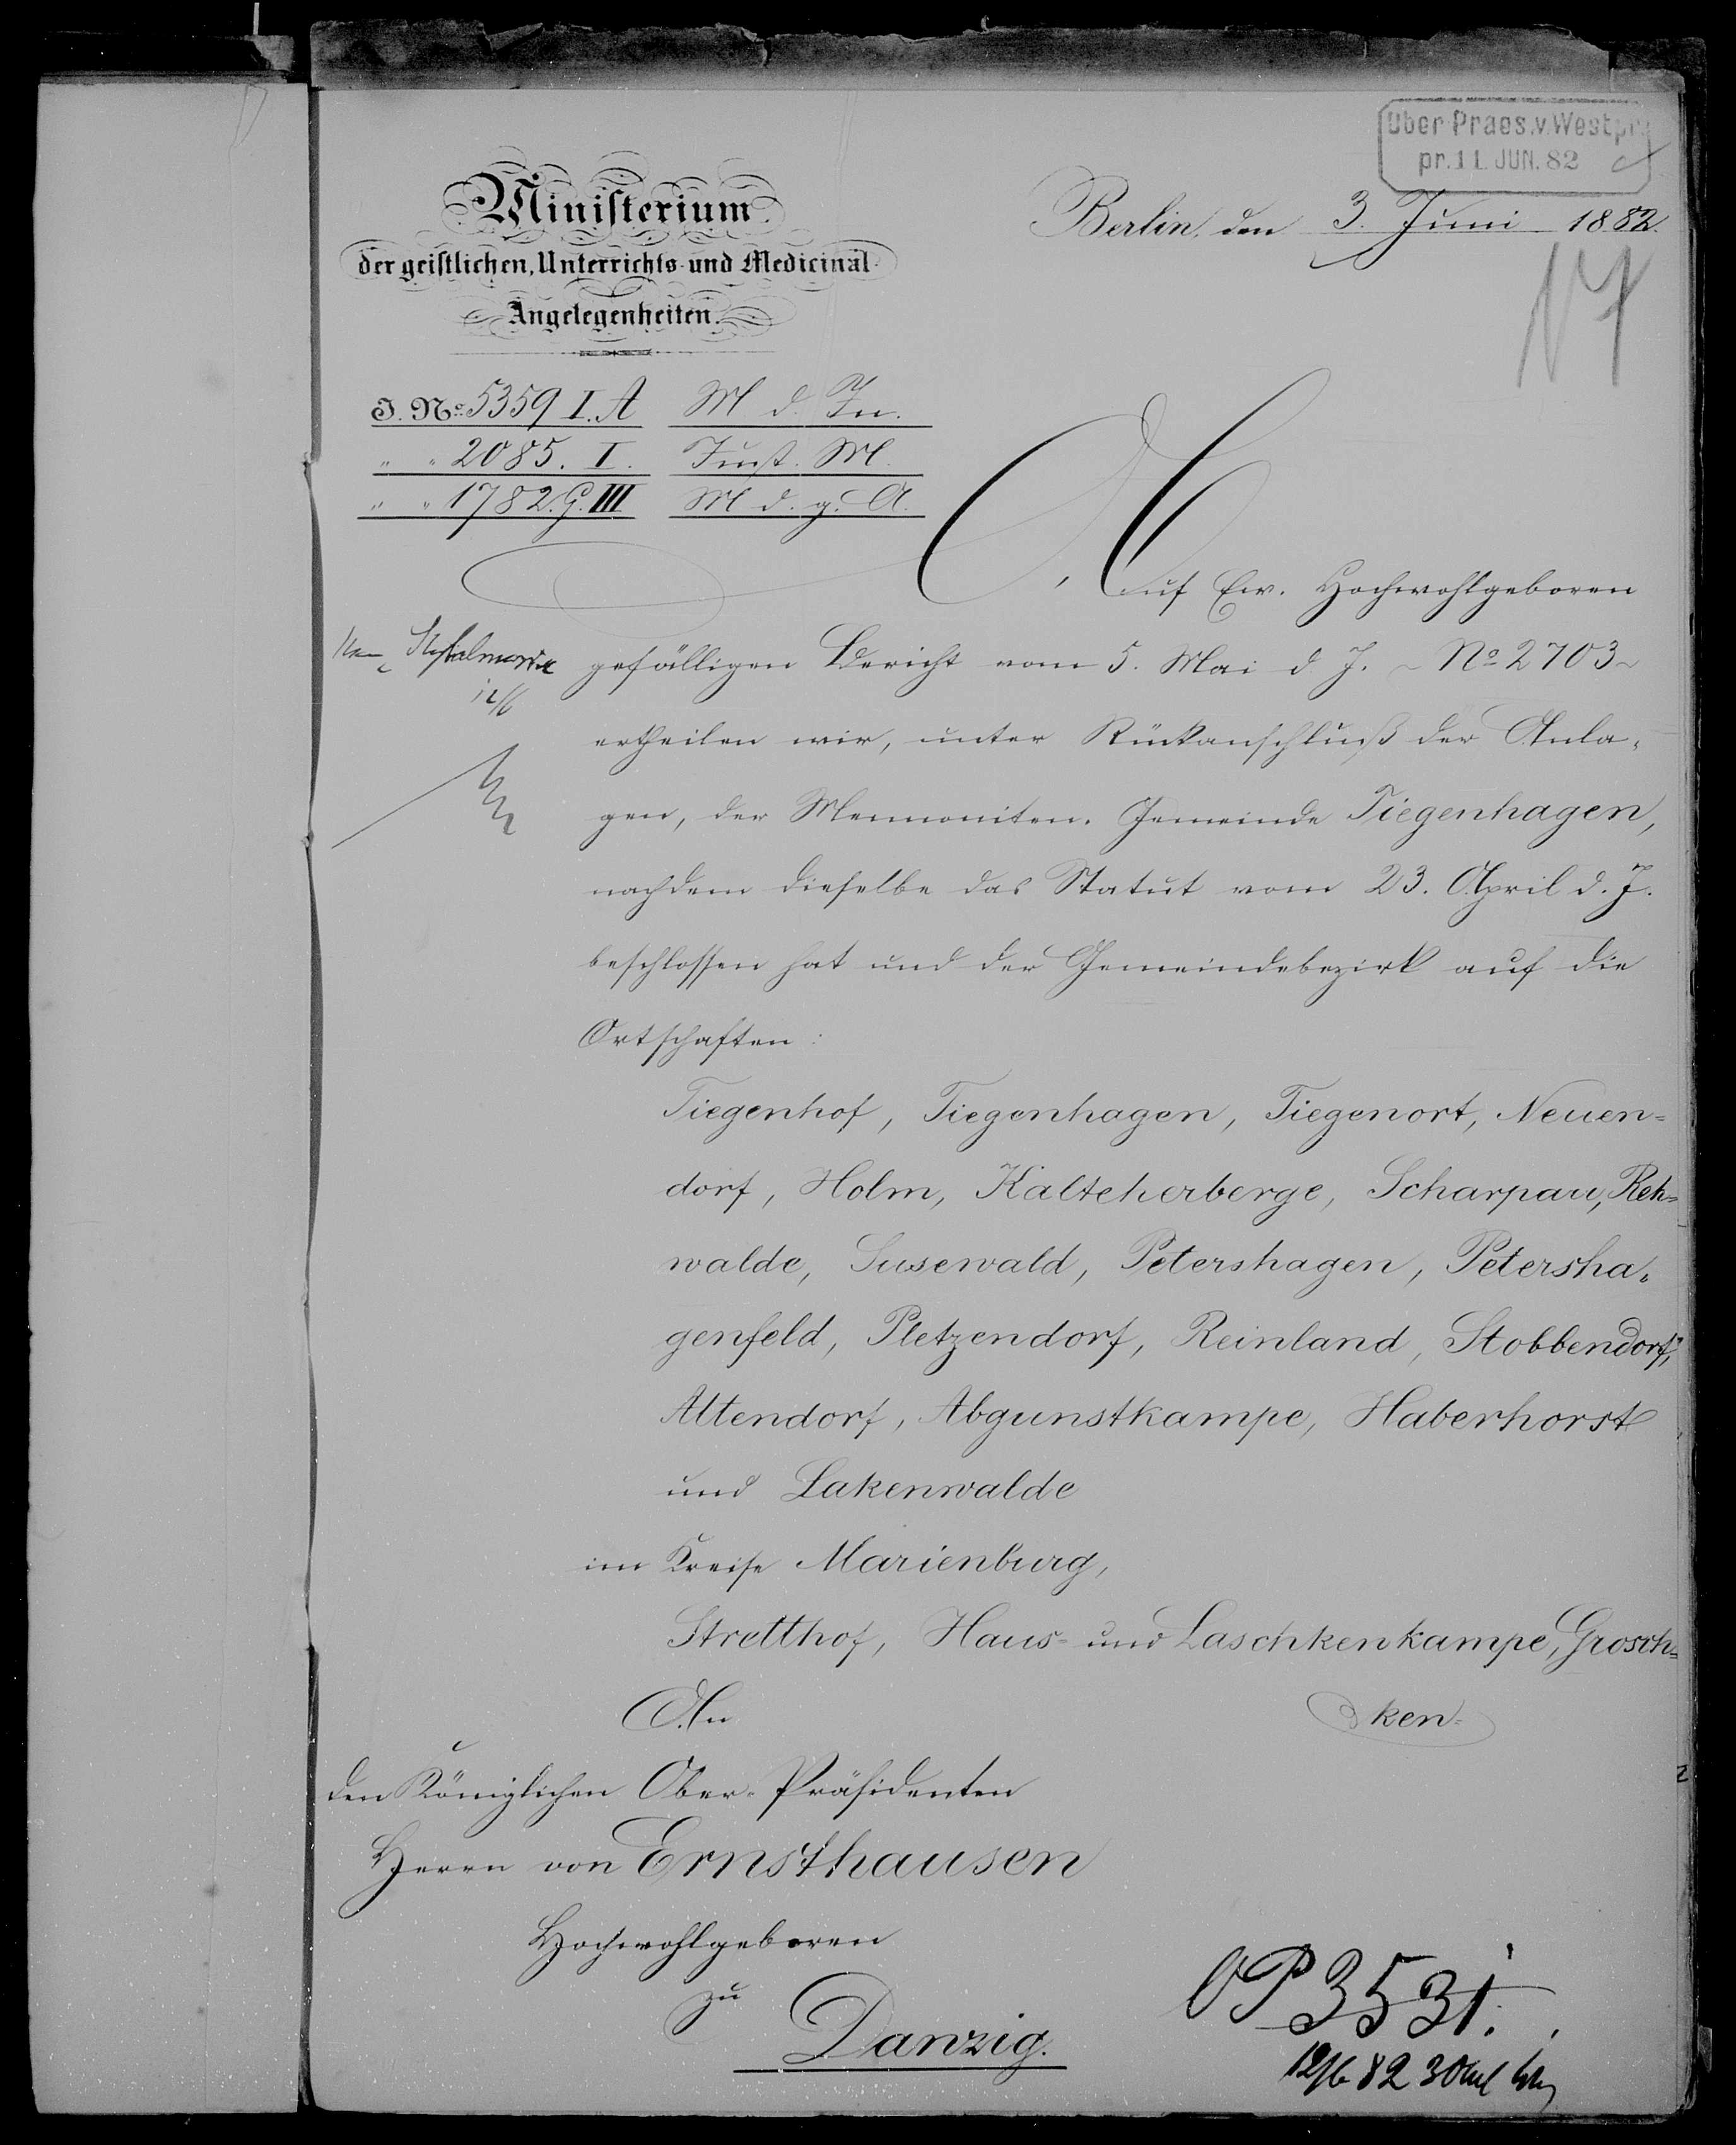 Ober-Praes.v.Westpr.
pr.11. JUN.82
Ministerium
der geistlichen, Unterrichts- und Medicinal-
Angelegenheiten.
Berlin, den 3. Juni 1882.
17
J. No. 5359 I. A M d. In.
" " 2085. I. Just. M.
" " 1782. G. III M d. g. A.
Auf Ew. Hochwohlgeboren
gefälligen Bericht vom 5. Mai d. J. - No 2703 -
ertheilen wir, unter Rückanschluß der Anla-
gen, der Mennoniten-Gemeinde Tiegenhagen,
nachdem dieselbe das Statut vom 23. April d. J.
beschlossen hat und der Gemeindebezirk auf die
Ortschaften:
Tiegenhof, Tiegenhagen, Tiegenort, Neuen-
dorf, Holm, Kalteherberge, Scharpau, Reh-
walde, Susewald, Petershagen, Petersha-
genfeld, Pletzendorf, Reinland, Stobbendorf,
Altendorf, Abgunstkampe, Haberhorst
und Lakenwalde
im Kreise Marienburg,
Stretthof, Haus- und Laschkenkampe, Grosch-
ken-
An
den Königlichen Ober-Präsidenten
Herrn von Ernsthausen
Hochwohlgeboren
zu
Danzig.
12/6
OP 3531.
12/6 82